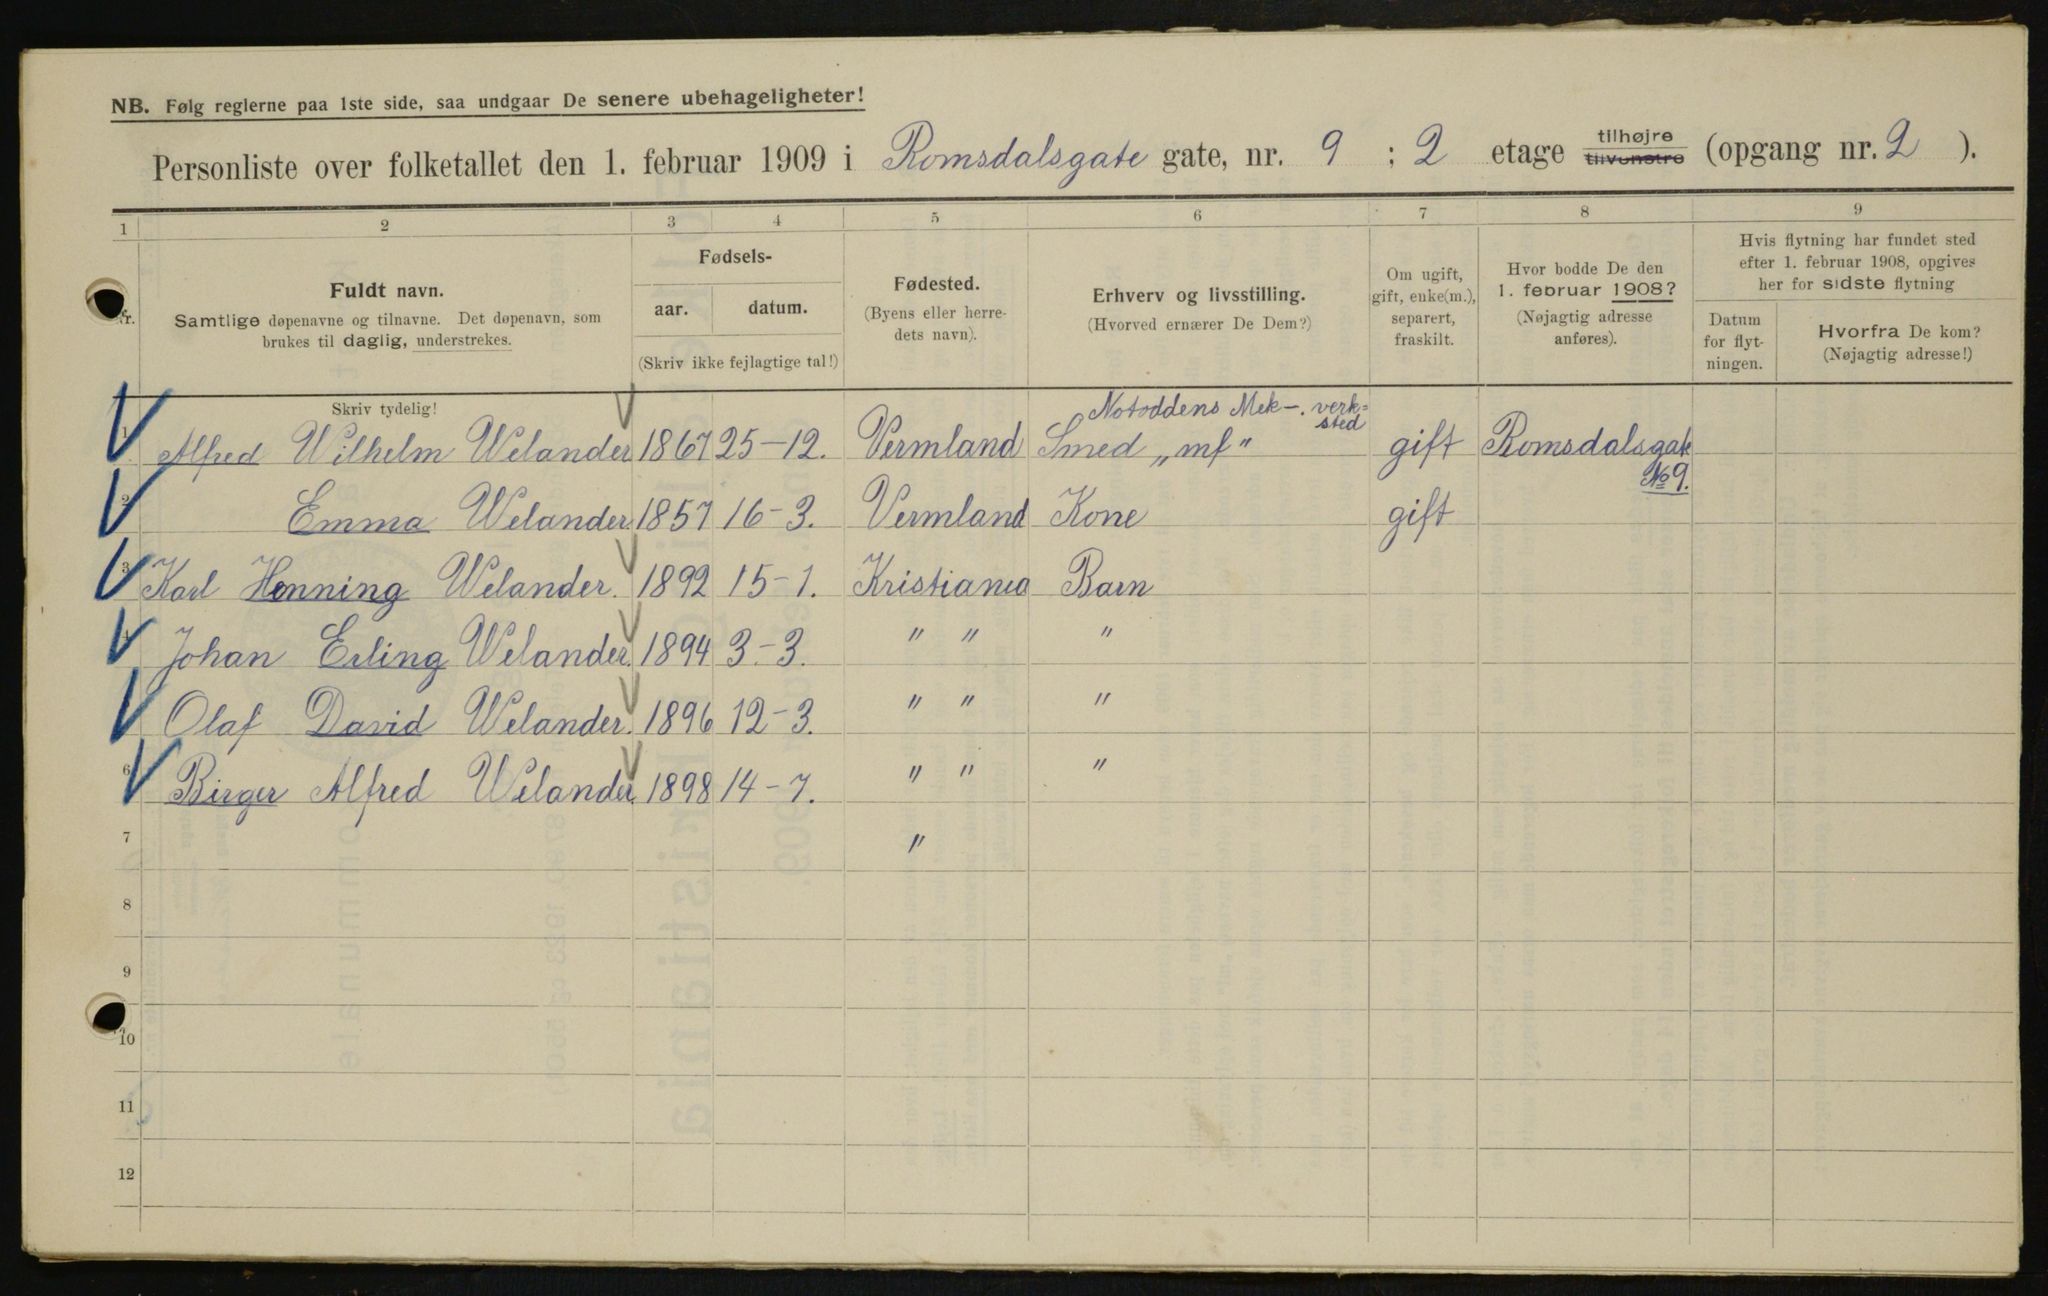 NB. Følg reglerne paa 1ste side, saa undgaar De senere ubehageligheter!
Personliste over folketallet den 1. februar 1909 i Romsdalsgate gate, nr. 9 ; 2 etage tilhøjre tilvenstre (opgang nr. 2 ).
1 2 3 4 5 6 7 8 9
Nr.
Fuldt navn.
Samtlige døpenavne og tilnavne. Det døpenavn, som
brukes til daglig, understrekes.
Skriv tydelig!
Fødsels-
aar. datum.
(Skriv ikke fejlagtige tal!)
Fødested.
(Byens eller herre-
dets navn).
Erhverv og livsstilling.
(Hvorved ernærer De Dem?)
Om ugift,
gift, enke(m.),
separert,
fraskilt.
Hvor bodde De den
1. februar 1908?
(Nøjagtig adresse
anføres).
Hvis flytning har fundet sted
efter 1. februar 1908, opgives
her for sidste flytning
Datum
for flyt-
ningen.
Hvorfra De kom?
(Nøjagtig adresse!)
Notoddens Mek-. verk=
sted
1 Alfred Wilhelm Welander 1867 25-12. Vermland Smed „mf" gift Romsdalsgate
No 9.
2 Emma Welander. 1857 16-3. Vermland Kone gift
3 Karl Henning Welander. 1892 15-1. Kristiania Barn
4 Johan Erling Welander. 1894 3-3. " " "
Olaf David Welander. 1896 12-3. " " "
6 Birger Alfred Welander. 1898 14-7. " " "
7 "
8
9
10
11
12